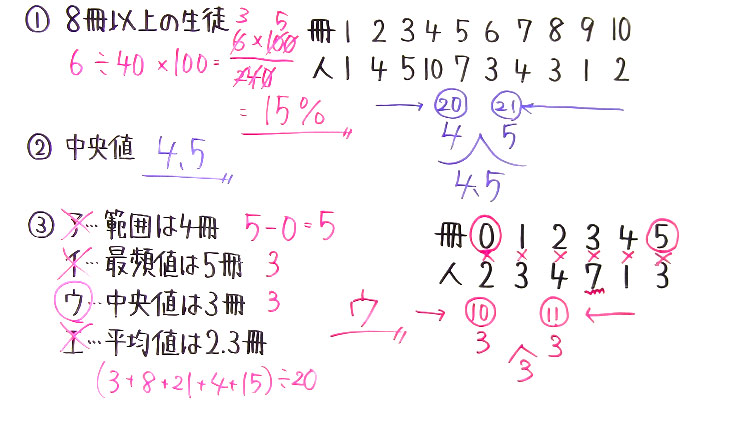 ① 8冊以上の生徒
6÷40×100= 6×100/40 3 5
= 15%
冊 1 2 3 4 5 6 7 8 9 10
人 1 4 5 10 7 3 4 3 1 2
→ 20 21 ←
4 5
4.5
② 中央値 4.5
③ ア…範囲は4冊 5-0=5
イ…最頻値は5冊 3
ウ…中央値は3冊 3
エ…平均値は2.3冊
(3+8+21+4+15)÷20
ウ
冊 0 1 2 3 4 5
× × × × × ×
人 2 3 4 7 1 3
→ 10 11 ←
3 3
3